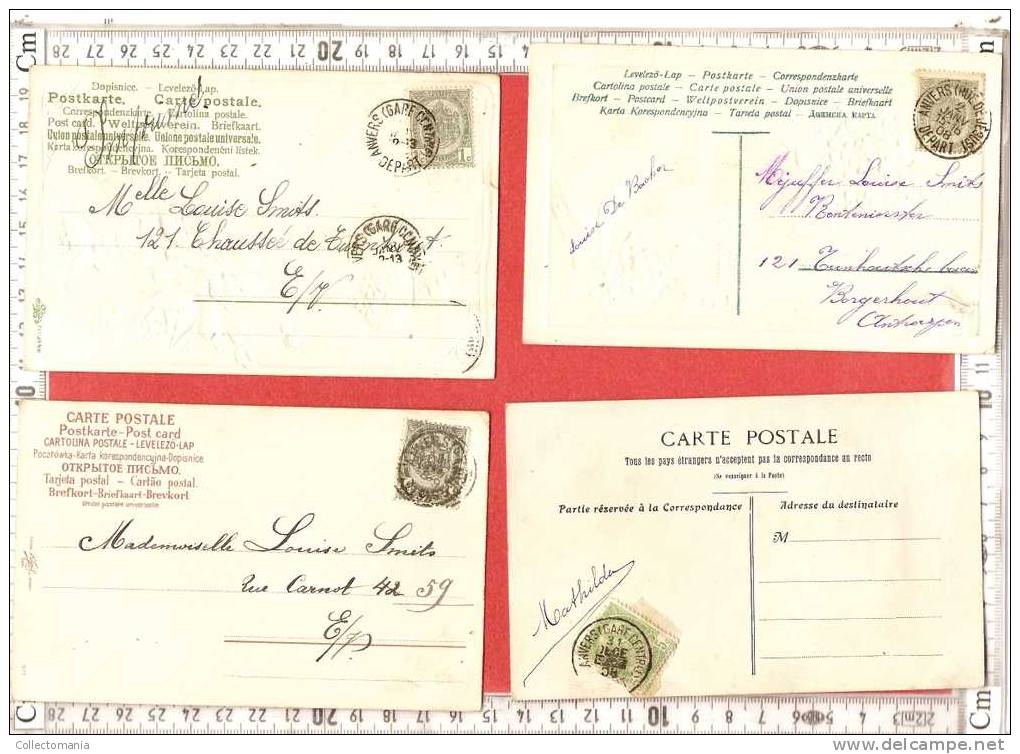 Dopisnice. — Levelező-Lap.
Postkarte. Carte postale.
Correspondenzkarte. Cartolina postale.
Post card. Weltpostverein. Briefkaart.
Union postale universelle. Unione postale universale.
Karta korespondencyjna. Korespondenční lístek.
ОТКРЫТОЕ ПИСЬМО.
Brefkort. - Brevkort. - Tarjeta postal.
ANVERS (GARE CENTRALE)
DEPART
1c
Melle Louise Smits.
121. Chaussée de Turnhout
E/V
Levelező-Lap — Postkarte — Correspondenzkarte
Cartolina postale — Carte postale — Union postale universelle
Brefkort — Postcard — Weltpostverein — Dopisnice — Briefkaart
Karta Korespondencyjna — Tarjeta postal — Дописна карта
DEPART
08
Louise De Backer
Mejuffer Louise Smits
121
Borgerhout
Antwerpen
CARTE POSTALE
Postkarte - Post card
CARTOLINA POSTALE - LEVELEZŐ-LAP
Pocztówka-Karta korespondencyjna-Dopisnice
ОТКРЫТОЕ ПИСЬМО.
Tarjeta postal — Cartão postal.
Brefkort-Briefkaart-Brevkort
Union postale universelle
Mademoiselle Louise Smits
Rue Carnot 42 59
E/V
CARTE POSTALE
Tous les pays étrangers n'acceptent pas la correspondance au recto
(Se renseigner à la Poste)
Partie réservée à la Correspondance
Adresse du destinataire
M
Mathilde
ANVERS (GARE CENTRALE)
31
DECE
Collectomania
delcampe.net